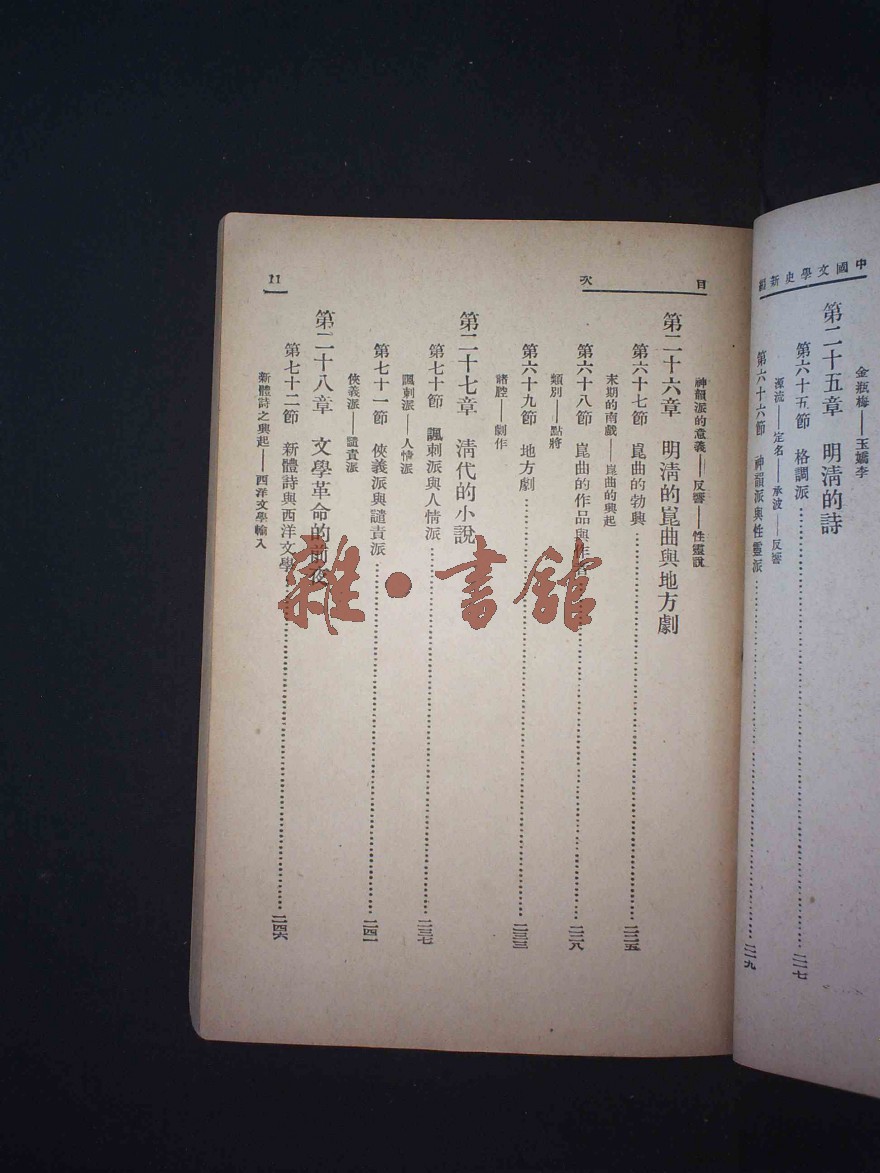 中國文學史新編
金瓶梅——玉嬌李
第二十五章 明清的詩
第六十五節 格調派……二一七
源流——定名——承波——反響
第六十六節 神韻派與性靈派……二一九
目次
11
神韻派的意義——反響——性靈說
第二十六章 明清的崑曲與地方劇
第六十七節 崑曲的勃興……二二五
末期的南戲——崑曲的興起
第六十八節 崑曲的作品與作者……二二八
類別——點將
第六十九節 地方劇……二三三
諸腔——劇作
第二十七章 清代的小說
第七十節 諷刺派與人情派……二三七
諷刺派——人情派
第七十一節 俠義派與譴責派……二四一
俠義派——譴責派
第二十八章 文學革命的前夜
第七十二節 新體詩與西洋文學……二四六
新體詩之興起——西洋文學輸入
雜·書館